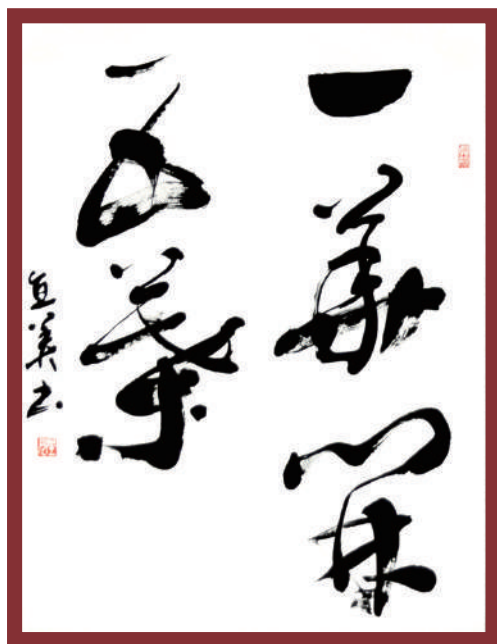 一華開
五葉
直美書